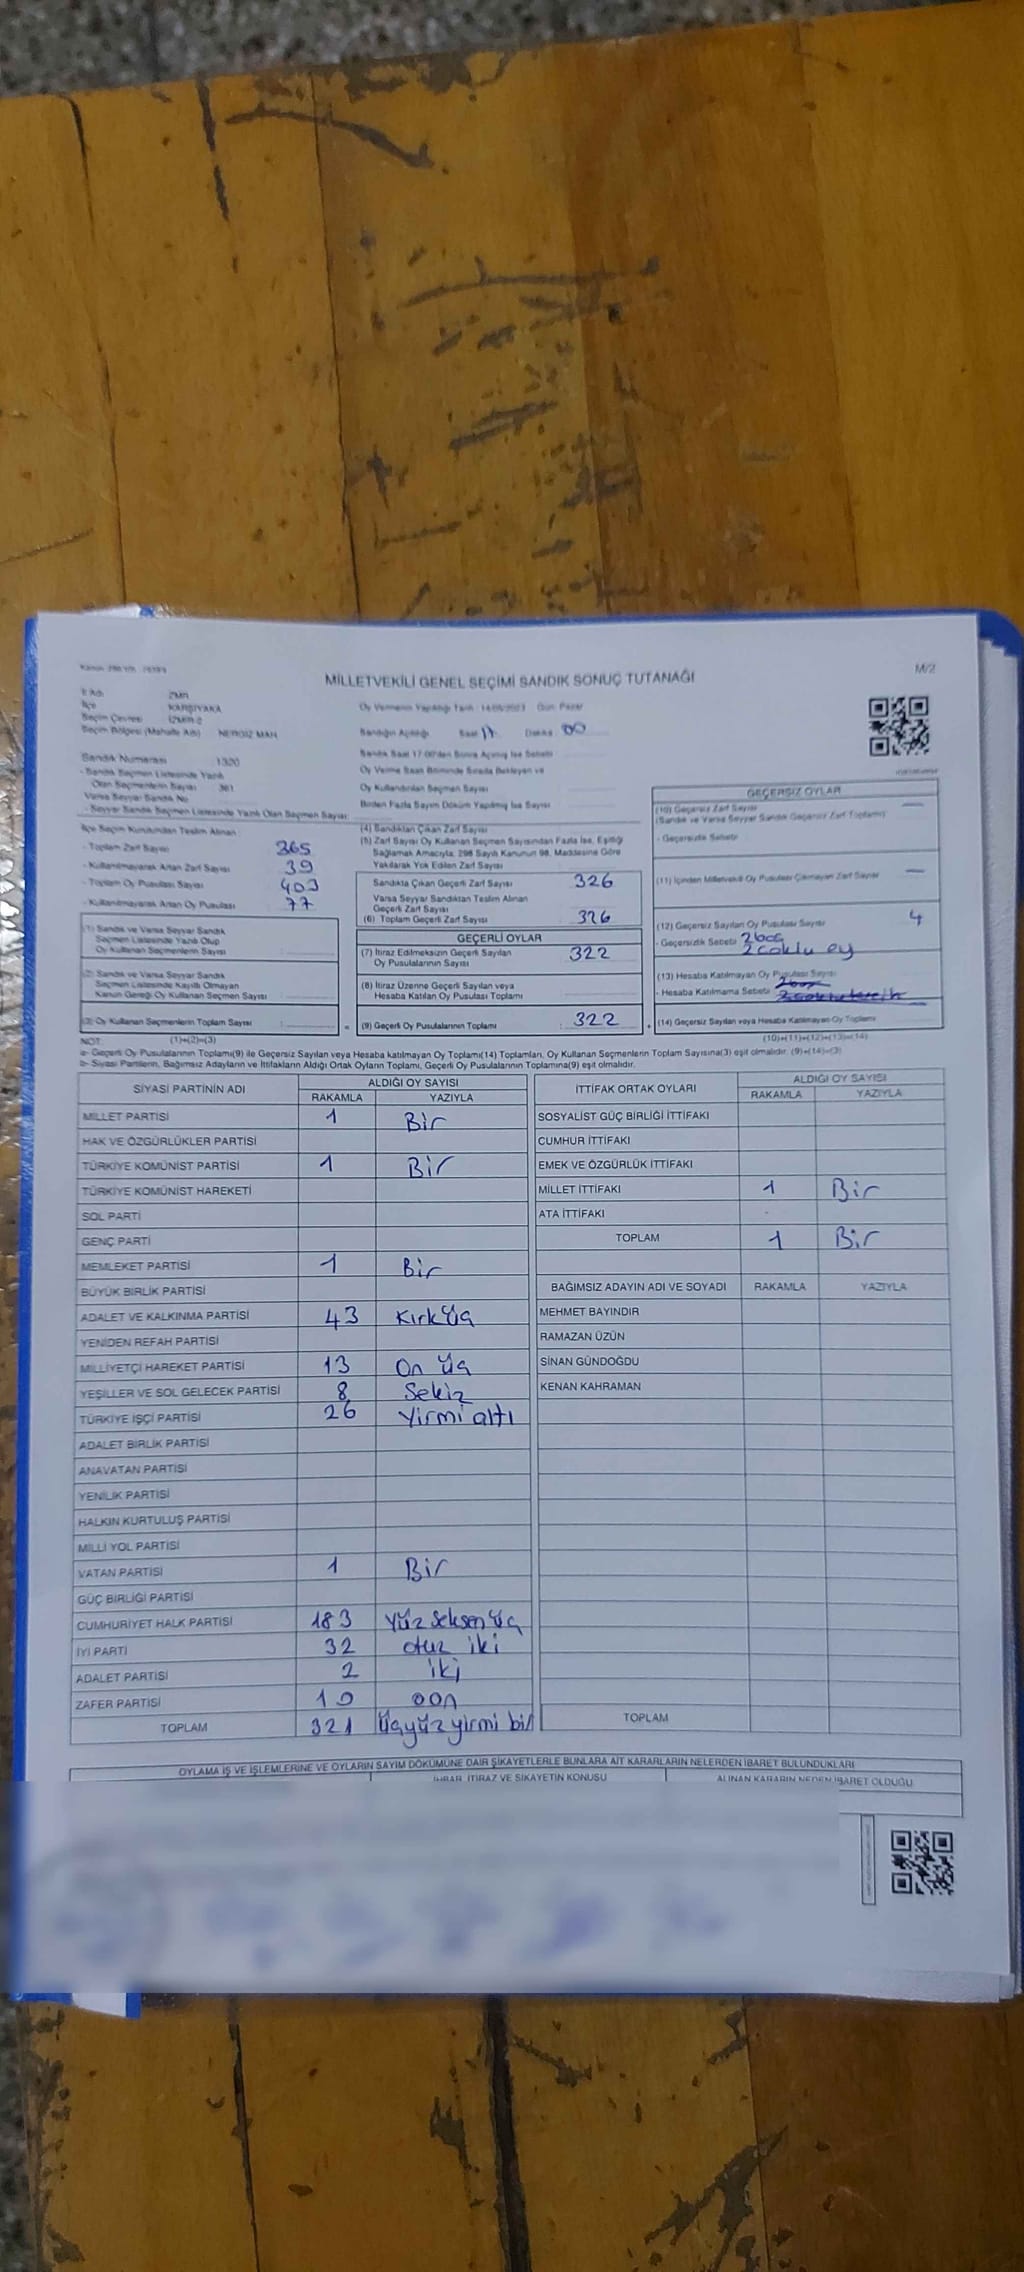 M/2
MİLLETVEKİLİ GENEL SEÇİMİ SANDIK SONUÇ TUTANAĞI
İl Adı İZMİR
İlçe KARŞIYAKA
Seçim Çevresi İZMİR-2
Seçim Bölgesi (Mahalle Adı) NERGİZ MAH.
Oy Vermenin Yapıldığı Tarih : 14/05/2023 Gün: Pazar
Sandığın Açıldığı Saat 17 Dakika 00
Sandık Saat 17:00'den Sonra Açılmış İse Sebebi
Oy Verme Saati Bitiminde Sırada Bekleyen ve
Oy Kullandırılan Seçmen Sayısı
Birden Fazla Sayım Döküm Yapılmış İse Sayısı
Sandık Numarası 1320
- Sandık Seçmen Listesinde Yazılı
Olan Seçmenlerin Sayısı 361
Varsa Seyyar Sandık No
- Seyyar Sandık Seçmen Listesinde Yazılı Olan Seçmen Sayısı
İlçe Seçim Kurulundan Teslim Alınan
- Toplam Zarf Sayısı 365
- Kullanılmayarak Artan Zarf Sayısı 39
- Toplam Oy Pusulası Sayısı 403
- Kullanılmayarak Artan Oy Pusulası 77
(1) Sandık ve Varsa Seyyar Sandık
Seçmen Listesinde Yazılı Olup
Oy Kullanan Seçmenlerin Sayısı
(2) Sandık ve Varsa Seyyar Sandık
Seçmen Listesinde Kayıtlı Olmayan
Kanun Gereği Oy Kullanan Seçmen Sayısı
(3) Oy Kullanan Seçmenlerin Toplam Sayısı
(4) Sandıktan Çıkan Zarf Sayısı
(5) Zarf Sayısı Oy Kullanan Seçmen Sayısından Fazla İse, Eşitliği
Sağlamak Amacıyla, 298 Sayılı Kanunun 98. Maddesine Göre
Yakılarak Yok Edilen Zarf Sayısı
Sandıkta Çıkan Geçerli Zarf Sayısı 326
Varsa Seyyar Sandıktan Teslim Alınan
Geçerli Zarf Sayısı
(6) Toplam Geçerli Zarf Sayısı 326
GEÇERLİ OYLAR
(7) İtiraz Edilmeksizin Geçerli Sayılan
Oy Pusulalarının Sayısı 322
(8) İtiraz Üzerine Geçerli Sayılan veya
Hesaba Katılan Oy Pusulası Toplamı
(9) Geçerli Oy Pusulalarının Toplamı 322
GEÇERSİZ OYLAR
(10) Geçersiz Zarf Sayısı —
(Sandık ve Varsa Seyyar Sandık Geçersiz Zarf Toplamı)
- Geçersizlik Sebebi
(11) İçinden Milletvekili Oy Pusulası Çıkmayan Zarf Sayısı —
(12) Geçersiz Sayılan Oy Pusulası Sayısı 4
- Geçersizlik Sebebi 2 boş
2 çoklu oy
(13) Hesaba Katılmayan Oy Pusulası Sayısı
- Hesaba Katılmama Sebebi
(14) Geçersiz Sayılan veya Hesaba Katılmayan Oy Toplamı
NOT: (1)+(2)=(3) (10)+(11)+(12)+(13)=(14)
a- Geçerli Oy Pusulalarının Toplamı(9) ile Geçersiz Sayılan veya Hesaba katılmayan Oy Toplamı(14) Toplamları, Oy Kullanan Seçmenlerin Toplam Sayısına(3) eşit olmalıdır. (9)+(14)=(3)
b- Siyasi Partilerin, Bağımsız Adayların ve İttifakların Aldığı Ortak Oyların Toplamı, Geçerli Oy Pusulalarının Toplamına(9) eşit olmalıdır.
SİYASİ PARTİNİN ADI ALDIĞI OY SAYISI
RAKAMLA YAZIYLA
MİLLET PARTİSİ 1 Bir
HAK VE ÖZGÜRLÜKLER PARTİSİ
TÜRKİYE KOMÜNİST PARTİSİ 1 Bir
TÜRKİYE KOMÜNİST HAREKETİ
SOL PARTİ
GENÇ PARTİ
MEMLEKET PARTİSİ 1 Bir
BÜYÜK BİRLİK PARTİSİ
ADALET VE KALKINMA PARTİSİ 43 Kırk üç
YENİDEN REFAH PARTİSİ
MİLLİYETÇİ HAREKET PARTİSİ 13 On üç
YEŞİLLER VE SOL GELECEK PARTİSİ 8 Sekiz
TÜRKİYE İŞÇİ PARTİSİ 26 Yirmi altı
ADALET BİRLİK PARTİSİ
ANAVATAN PARTİSİ
YENİLİK PARTİSİ
HALKIN KURTULUŞ PARTİSİ
MİLLİ YOL PARTİSİ
VATAN PARTİSİ 1 Bir
GÜÇ BİRLİĞİ PARTİSİ
CUMHURİYET HALK PARTİSİ 183 Yüz seksen üç
İYİ PARTİ 32 otuz iki
ADALET PARTİSİ 2 iki
ZAFER PARTİSİ 10 oon
TOPLAM 321 Üçyüz yirmi bir
İTTİFAK ORTAK OYLARI ALDIĞI OY SAYISI
RAKAMLA YAZIYLA
SOSYALİST GÜÇ BİRLİĞİ İTTİFAKI
CUMHUR İTTİFAKI
EMEK VE ÖZGÜRLÜK İTTİFAKI
MİLLET İTTİFAKI 1 Bir
ATA İTTİFAKI
TOPLAM 1 Bir
BAĞIMSIZ ADAYIN ADI VE SOYADI RAKAMLA YAZIYLA
MEHMET BAYINDIR
RAMAZAN ÜZÜN
SİNAN GÜNDOĞDU
KENAN KAHRAMAN
TOPLAM
OYLAMA İŞ VE İŞLEMLERİNE VE OYLARIN SAYIM DÖKÜMÜNE DAİR ŞİKAYETLERLE BUNLARA AİT KARARLARIN NELERDEN İBARET BULUNDUKLARI
İHBAR, İTİRAZ VE ŞİKAYETİN KONUSU ALINAN KARARIN NEDEN İBARET OLDUĞU